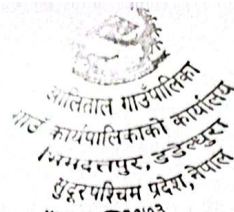 आलिताल गाउँपालिका
गाउँ कार्यपालिकाको कार्यालय
जिमदत्तपुर, डडेल्धुरा
सुदूरपश्चिम प्रदेश, नेपाल